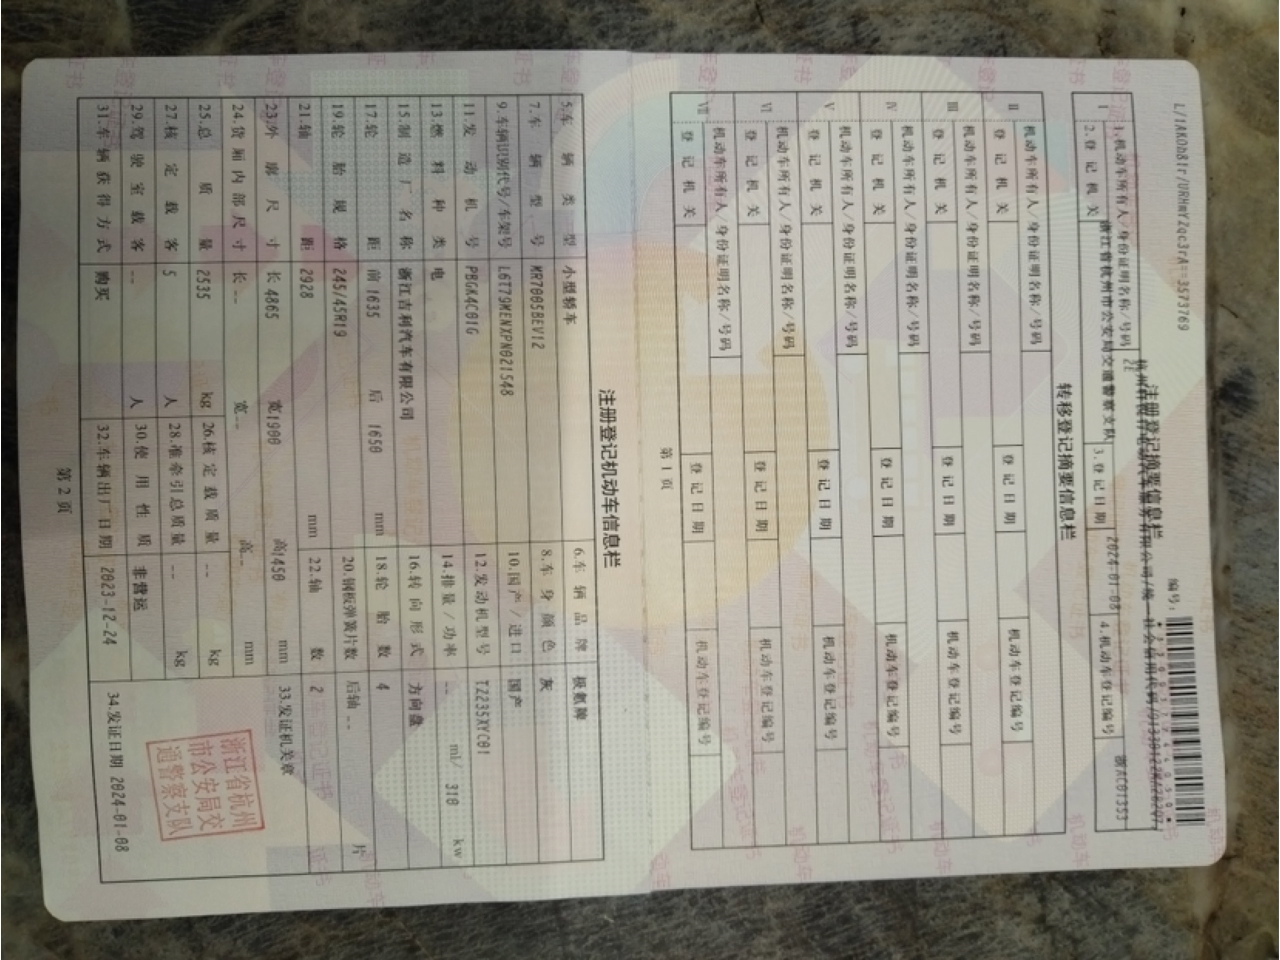 L/1AKOb81r/URHmYZqc3rA==3573769
编号：
注册登记摘要信息栏
Ⅰ
1.机动车所有人/身份证明名称/号码
2.登记机关 浙江省杭州市公安局交通警察支队 3.登记日期 2024-01-08 4.机动车登记编号 浙AC01353
转移登记摘要信息栏
Ⅱ 机动车所有人/身份证明名称/号码
登记机关 登记日期 机动车登记编号
Ⅲ 机动车所有人/身份证明名称/号码
登记机关 登记日期 机动车登记编号
Ⅳ 机动车所有人/身份证明名称/号码
登记机关 登记日期 机动车登记编号
Ⅴ 机动车所有人/身份证明名称/号码
登记机关 登记日期 机动车登记编号
Ⅵ 机动车所有人/身份证明名称/号码
登记机关 登记日期 机动车登记编号
Ⅶ 机动车所有人/身份证明名称/号码
登记机关 登记日期 机动车登记编号
第1页
注册登记机动车信息栏
5.车辆类型 小型轿车 6.车辆品牌 极氪牌
7.车辆型号 MR7005BEV12 8.车身颜色 灰
9.车辆识别代号/车架号 L6T79MENXPN021548 10.国产/进口 国产
11.发动机号 PBGK4C01G 12.发动机型号 TZ235XYC01
13.燃料种类 电 14.排量/功率 -- ml/ 310 kw
15.制造厂名称 浙江吉利汽车有限公司 16.转向形式 方向盘
17.轮距 前 1635 后 1650 mm 18.轮胎数 4
19.轮胎规格 245/45R19 20.钢板弹簧片数 后轴 -- 片
21.轴距 2928 mm 22.轴数 2
23.外廓尺寸 长 4865 宽 1900 高 1450 mm 33.发证机关章
24.货厢内部尺寸 长 -- 宽 -- 高 -- mm
25.总质量 2535 kg 26.核定载质量 -- kg
27.核定载客 5 人 28.准牵引总质量 -- kg
29.驾驶室载客 -- 人 30.使用性质 非营运
31.车辆获得方式 购买 32.车辆出厂日期 2023-12-24 34.发证日期 2024-01-08
浙江省杭州
市公安局交
通警察支队
第2页